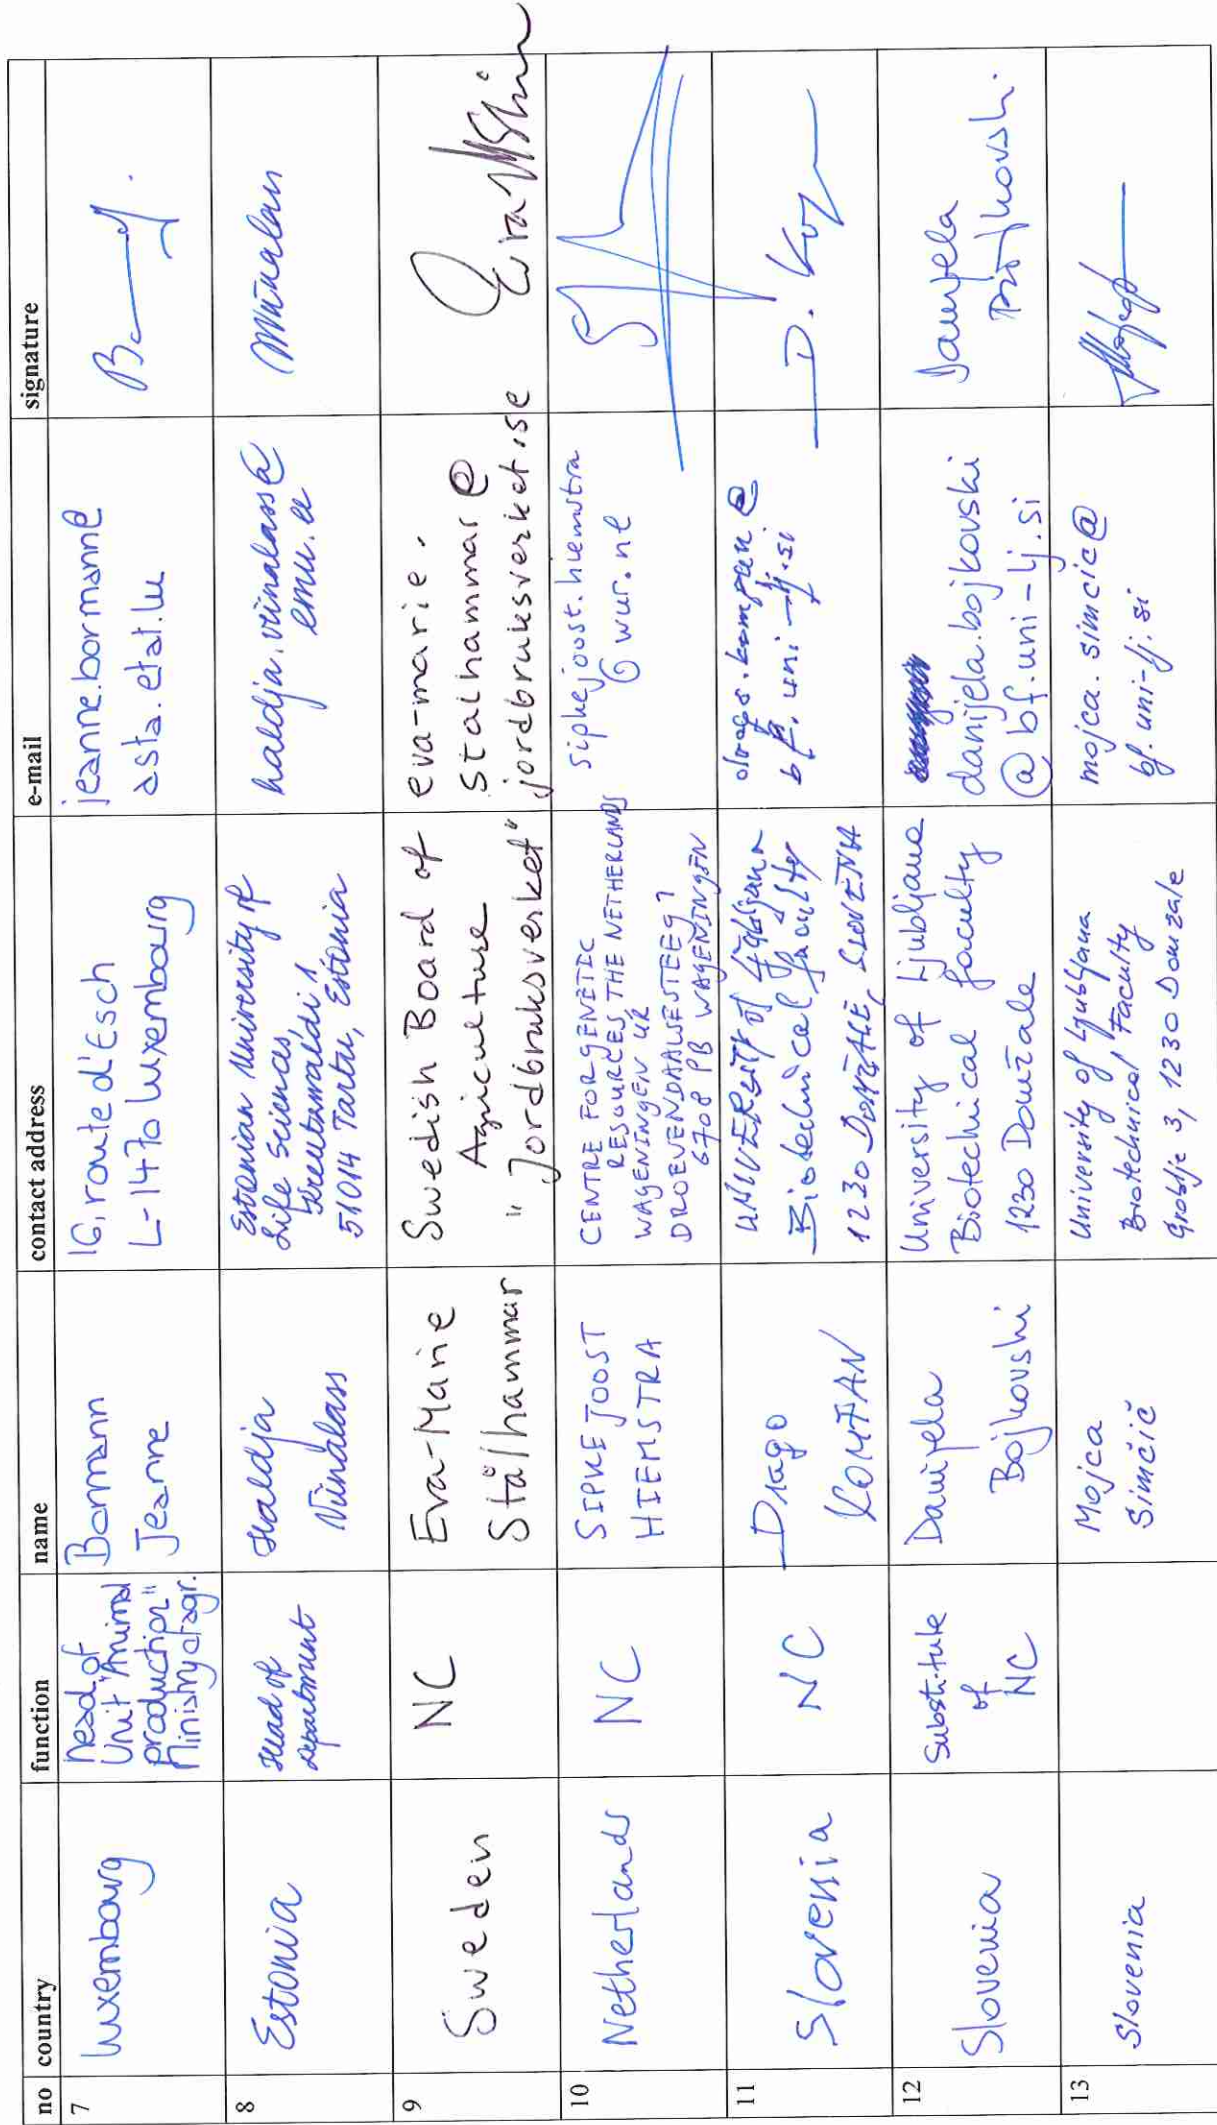 no country function name contact address e-mail signature
7
Luxembourg
head of
Unit "Animal
production"
Ministry of agr.
Bormann
Jeanne
16, route d'Esch
L-1470 Luxembourg
jeanne.bormann@
asta.etat.lu
8
Estonia
Head of
department
Haldja
Viinalass
Estonian University of
Life Sciences,
Kreutzwaldi 1
51014 Tartu, Estonia
haldja.viinalass@
emu.ee
9
Sweden
NC
Eva-Marie
Stålhammar
Swedish Board of
Agriculture
"Jordbruksverket"
eva-marie.
stalhammar@
jordbruksverket.se
10
Netherlands
NC
SIPKE JOOST
HIEMSTRA
CENTRE FOR GENETIC
RESOURCES THE NETHERLANDS
WAGENINGEN UR
DROEVENDAALSESTEEG 1
6708 PB WAGENINGEN
sipkejoost.hiemstra
@wur.nl
11
Slovenia
NC
Drago
KOMPAN
UNIVERSITY of Ljubljana
Biotechnical faculty
1230 DOMŽALE, SLOVENIA
drago.kompan@
bf.uni-lj.si
D. Ko
12
Slovenia
Substitute
of
NC
Danijela
Bojkovski
University of Ljubljana
Biotechnical faculty
1230 Domžale
danijela.bojkovski
@bf.uni-lj.si
Danijela
Bojkovski
13
Slovenia
Mojca
Simčič
University of Ljubljana
Biotechnical Faculty
Groblje 3, 1230 Domžale
mojca.simcic@
bf.uni-lj.si